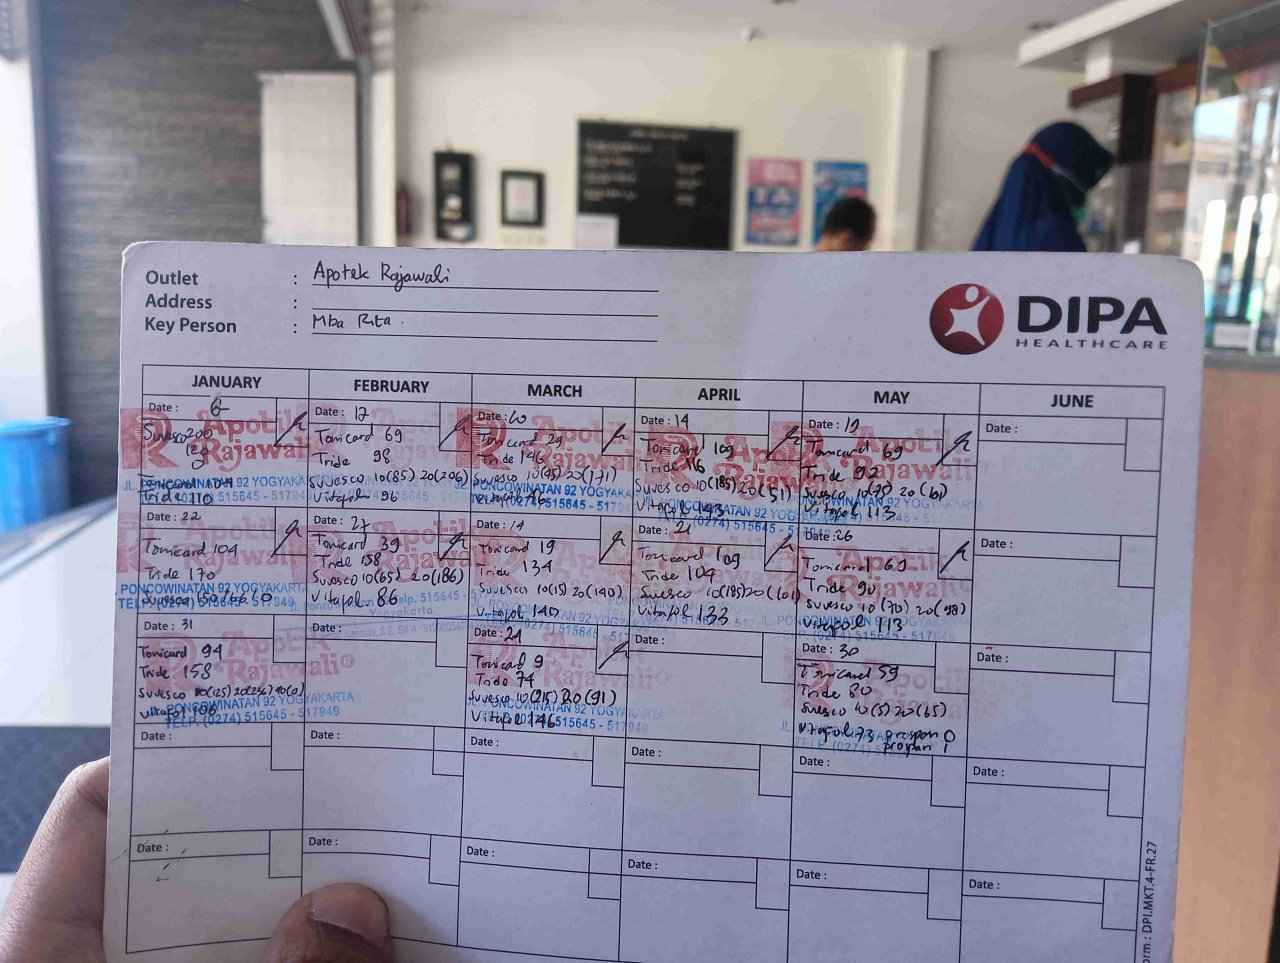 Outlet : Apotek Rajawali
Address :
Key Person : Mba Rita
DIPA
HEALTHCARE
JANUARY
FEBRUARY
MARCH
APRIL
MAY
JUNE
Date : 6
Suvesco 200
Tride 110
Date : 22
Tonicard 109
Tride 170
Date : 31
Tonicard 94
Tride 158
Vitafol 106
Date :
Date :
Date : 17
Tonicard 69
Tride 98
Suvesco 10(85) 20(206)
Vitafol 96
Date : 27
Tonicard 39
Tride 158
Suvesco 10(65) 20(186)
Vitafol 86
Date :
Date :
Date :
Date : 10
Tonicard 29
Tride 146
Suvesco 10(95) 20(171)
Date : 14
Tonicard 19
Tride 134
Suvesco 10(15) 20(140)
Vitafol 140
Date : 21
Tonicard 9
Tride 74
Suvesco 10(215) 20(91)
Vitafol 146
Date :
Date :
Date : 14
Tonicard 109
Tride 116
Suvesco 10(185) 20(51)
Vitafol 143
Date : 21
Tonicard 109
Tride 104
Suvesco 10(185) 20(101)
Vitafol 133
Date :
Date :
Date :
Date : 19
Tonicard 69
Tride 92
Suvesco 10(75) 20(101)
Vitafol 113
Date : 26
Tonicard 69
Tride 90
Suvesco 10(70) 20(98)
Vitafol 113
Date : 30
Tonicard 59
Tride 80
Suvesco 10(5) 20(65)
Vitafol 73 prospan 0
propan 1
Date :
Date :
Date :
Date :
Date :
Date :
Date :
Apotik
Rajawali
JL. PONCOWINATAN 92 YOGYAKARTA
TELP. (0274) 515645 - 517949
orm : DPI.MKT.4-FR.27